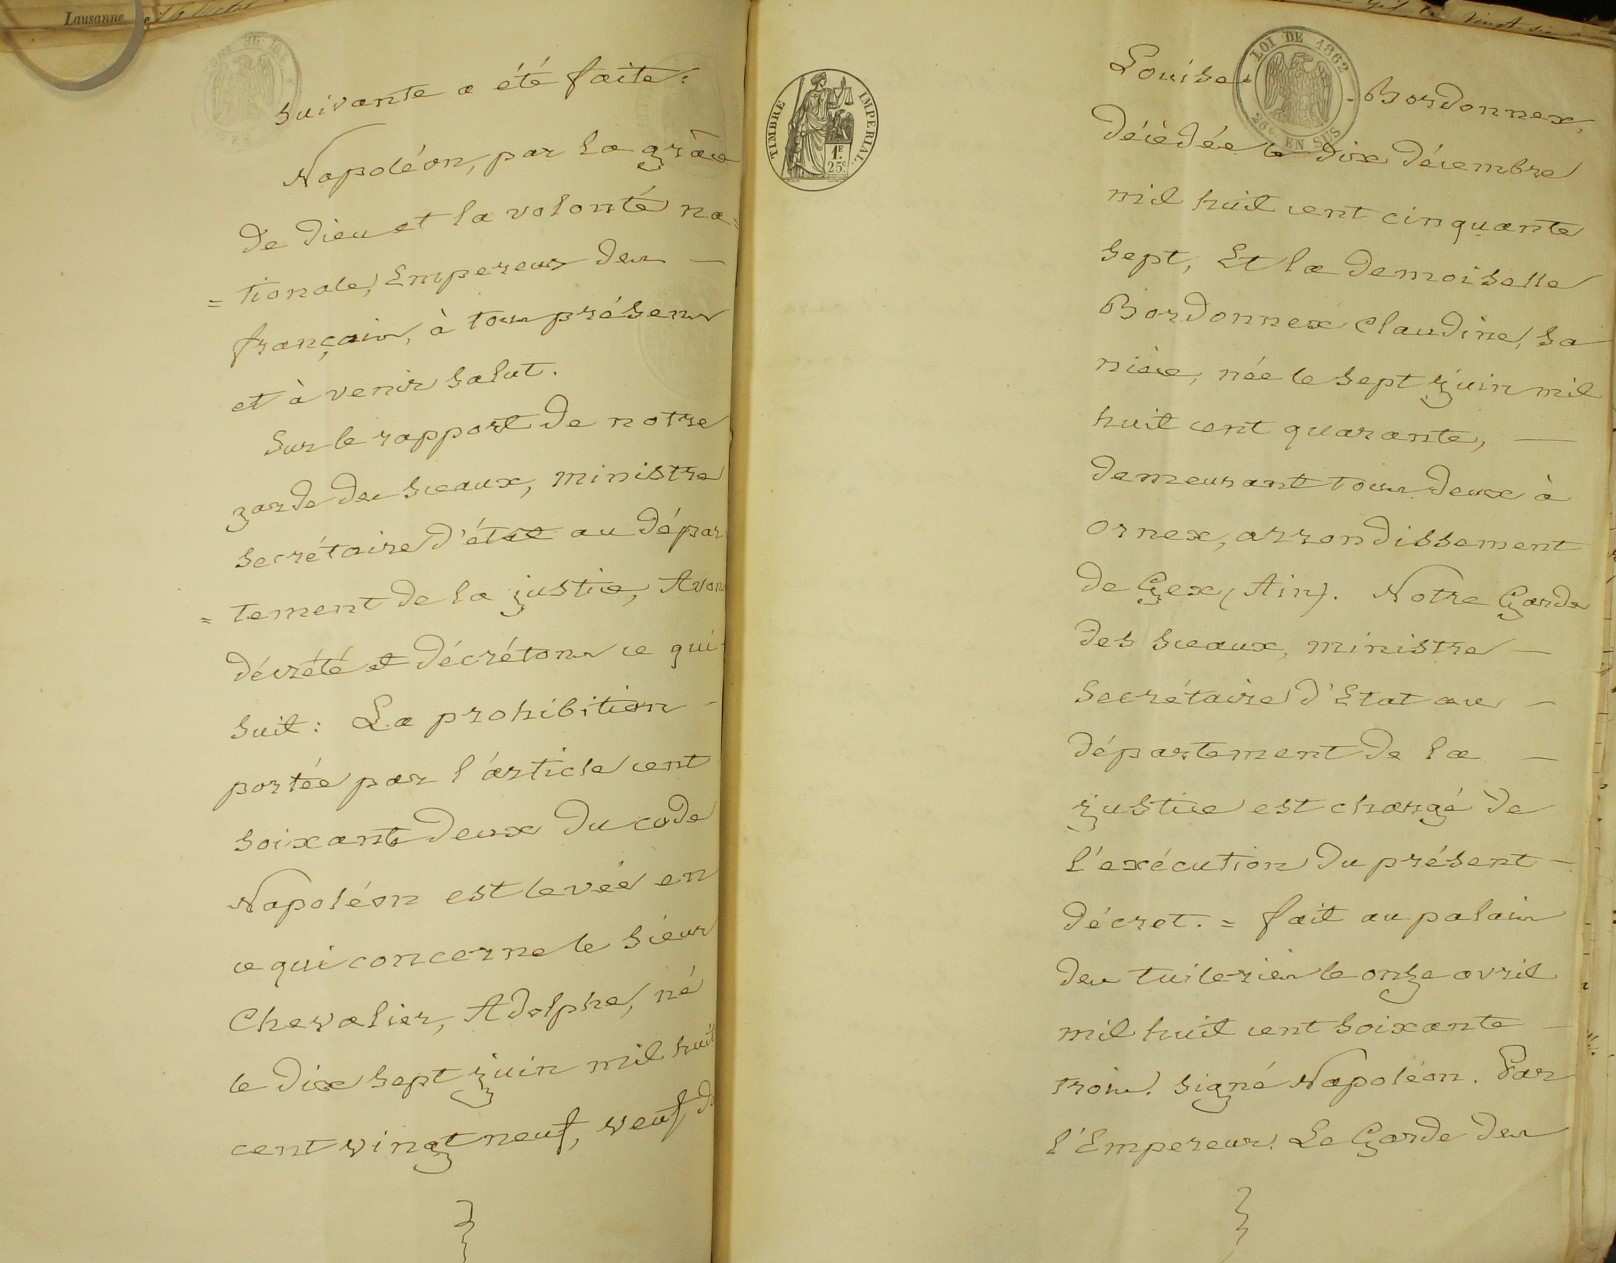 Lausanne
suivante a été faite:
Napoléon, par la grâce
de dieu et la volonté na=
=tionale, Empereur des —
français, à tous présens
et à venir salut.
Sur le rapport de notre
garde des sceaux, ministre
secrétaire d'état au dépar
=tement de la justice, Avons
décrété et décrétons ce qui
suit: La prohibition -
portée par l'article cent
soixante deux du code
Napoléon est levée en
ce qui concerne le sieur
Chevalier, Adolphe, né
le dix sept juin mil huit
cent vingt neuf, veuf de
TIMBRE IMPERIAL
1F.
25c.
LOI DE 1862
EN SUS
Louise - Bordonnex,
décédée le dix décembre
mil huit cent cinquante
sept, Et la demoiselle
Bordonnex Claudine, sa
nièce, née le sept juin mil
huit cent quarante, —
demeurant tous deux à
Ornex, arrondissement
de Gex, (Ain). Notre Garde
des sceaux, ministre —
secrétaire d'Etat au —
département de la —
justice est chargé de
l'exécution du présent —
décret. = fait au palais
des tuileries le onze avril
mil huit cent soixante —
trois. Signé Napoléon. Par
l'Empereur. Le Garde des